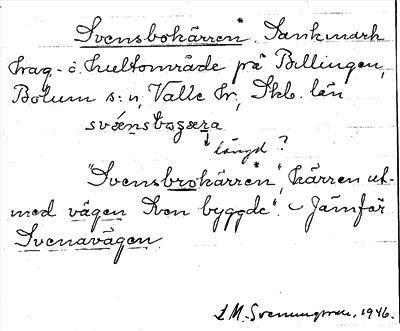 Svensbokärren*. Sankmark
hrag- o. hultområde på Billingen,
Bolum s:n, Valle hr, Skb. län
svǽnsbo̱gæra
längd ?
"Svensbrokärren*", kärren ut-
med vägen Sven byggde". – Jämför
Svenavägen
M. Svenungsson, 1946.